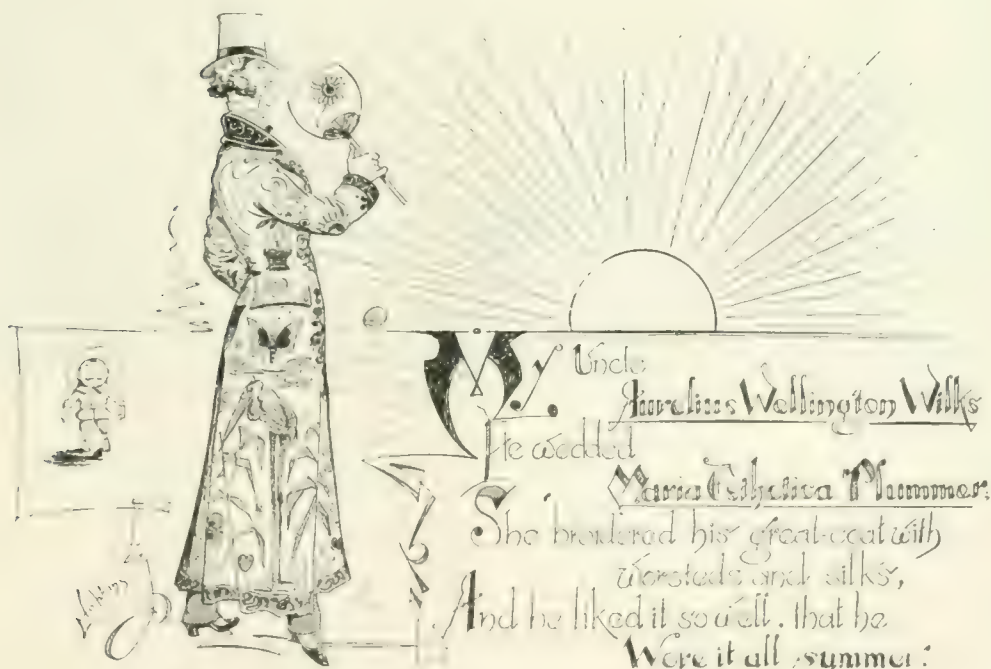 My Uncle
Aurelius Wellington Wilks
He wedded
Maria Esthetica Plummer;
She broidered his great-coat with
worsteds and silks,
And he liked it so well, that he
Wore it all summer.